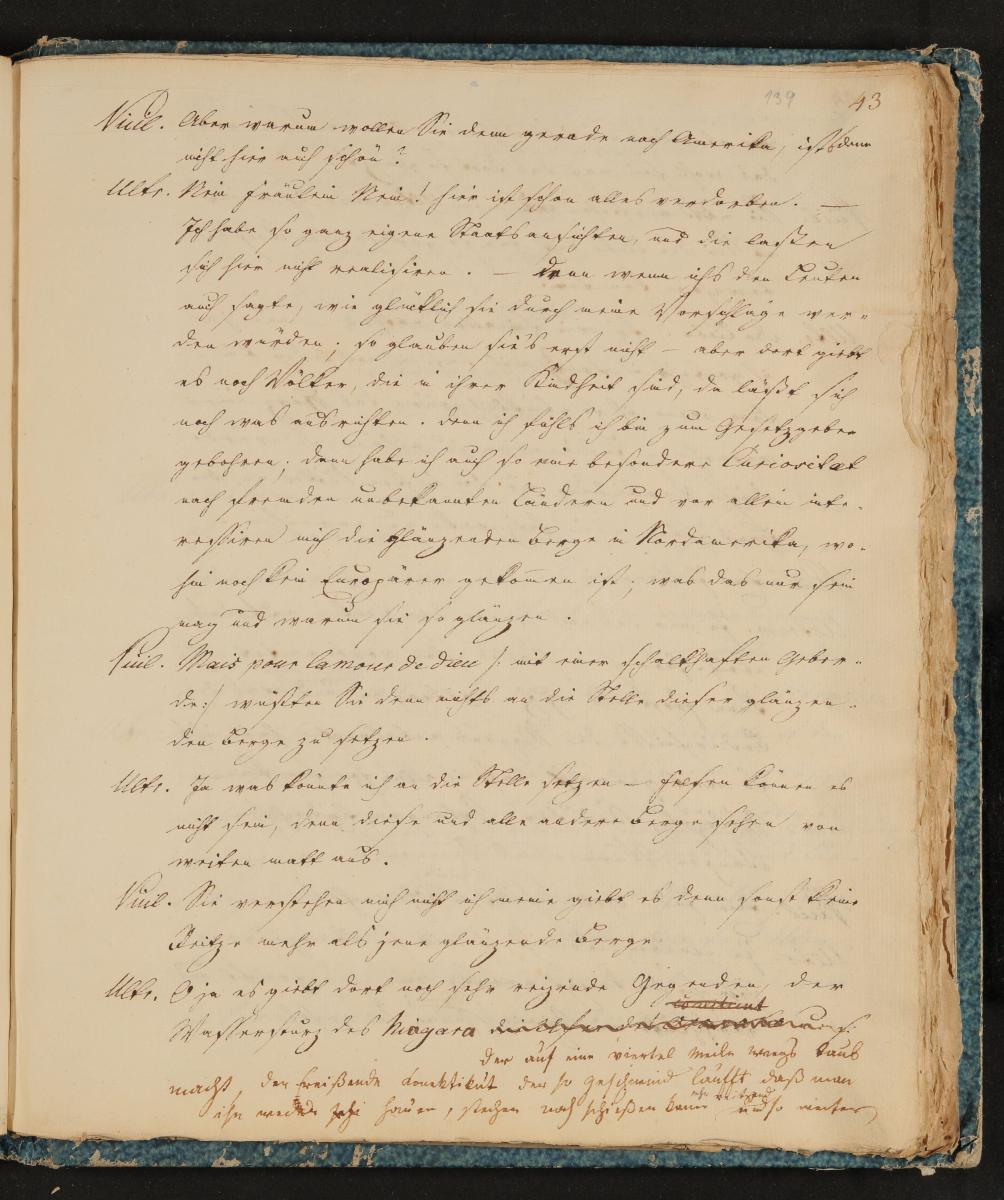 139 43
Aber warum wollen Sie denn gerade nach Amerika, ists denn
nicht hier auch schön?
Ultr. Nein Fräulein Nein! hier ist schon alles verdorben. —
Ich habe so ganz eigene Staatsansichten, und die lassen
sich hier nicht realisiren. — denn wenn ichs den Leuten
auch sagte, wie glücklich sie durch meine Vorschläge wer-
den würden; so glauben sie's erst nicht — aber dort giebt
es noch Völker, die in ihrer Kindheit sind, da läßt sich
noch was ausrichten. denn ich fühls ich bin zum Gesetzgeber
gebohren; dann habe ich auch so eine besondere Curiositæt
nach fremden unbekannten Ländern und vor allen inte-
ressiren mich die glänzenden Berge in Nordamerika, wo-
hin noch kein Europäer gekommen ist; was das nur sein
mag und warum sie so glänzen.
Mais pour lamour de dieu /: mit einer schalkhaften Geber-
de:/ wüßten Sie denn nichts an die Stelle dieser glänzen-
den Berge zu setzen.
Ultr. Ja was könnte ich an die Stelle setzen — Felsen können es
nicht sein, denn diese und alle andere Berge sehen von
weiten matt aus.
Sie verstehen mich nicht ich meine giebt es denn sonst keine
Reitze mehr als jene glänzende Berge
Ultr. O ja es giebt dort noch sehr reizende Gegenden, der
Wassersturz des Niagara
der auf eine viertel Meile wegs taub
macht, den reißende Konektikut der so geschwind läufft daß man
ihn weder hauen, stechen noch schießen kann und so weiter